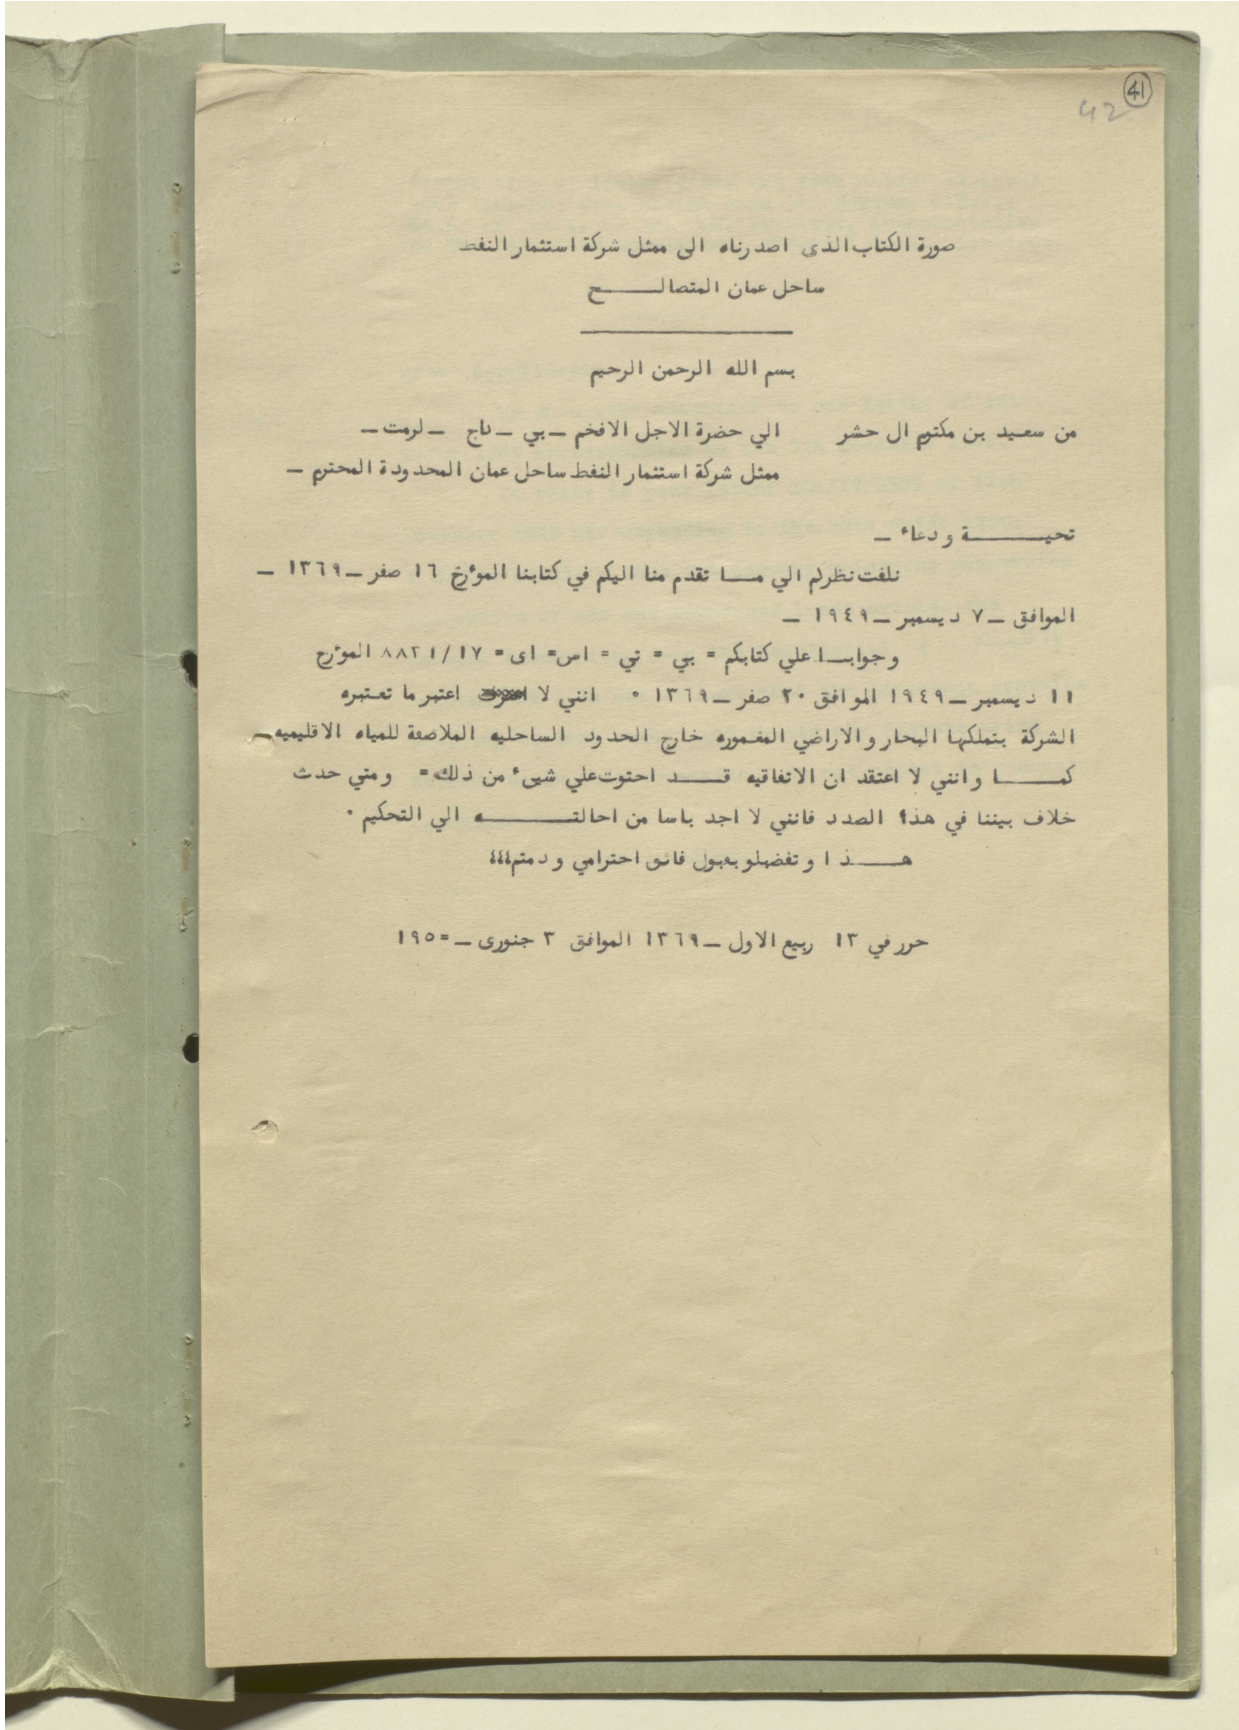 41
42
صورة الكتاب الذى اصدرناه الى ممثل شركة استثمار النفط
ساحل عمان المتصالـــح
بسم الله الرحمن الرحيم
من سعيد بن مكتوم ال حشر الي حضرة الاجل الافخم ـ بي ـ تاج ـ لرمت ـ
ممثل شركة استثمار النفط ساحل عمان المحدودة المحترم ـ
تحيـــــة ودعاء ـ
نلفت نظركم الي مـــا تقدم منا اليكم في كتابنا المؤرخ ١٦ صفر ـ ١٣٦٩ ـ
الموافق ـ ٧ ديسمبر ـ ١٩٤٩ ـ
وجوابـا علي كتابكم = بي = تي = اس = اى = ٨٨٢١/١٧ المؤرخ
١١ ديسمبر ـ ١٩٤٩ الموافق ٢٠ صفر ـ ١٣٦٩ ٠ انني لا اعتبر ما تعتبره
الشركة بتملكها البحار والاراضي المغموره خارج الحدود الساحليه الملاصقة للمياه الاقليميه ـ
كمـــا وانني لا اعتقد ان الاتفاقيه قـــد احتوت علي شيىء من ذلك = ومتي حدث
خلاف بيننا في هذا الصدد فانني لا اجد باسا من احالتـــــه الي التحكيم ٠
هـــذا وتفضلو بقبول فائق احترامي ودمتم ٤٤٤
حرر في ١٣ ربيع الاول ـ ١٣٦٩ الموافق ٣ جنورى ـ =١٩٥